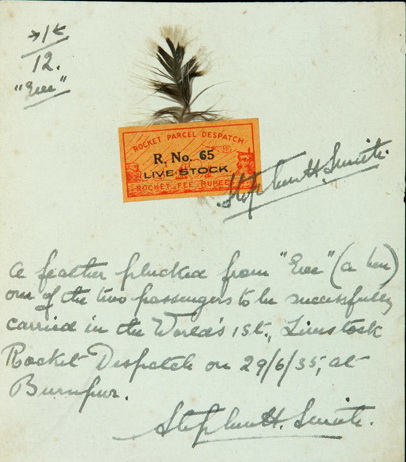 →1←
12.
"Eve"
ROCKET PARCEL DESPATCH
R. No. 65
LIVE STOCK.
ROCKET FEE RUPEE
Stephen H. Smith.
A feather plucked from "Eve" (a hen)
one of the two passengers to be successfully
carried in the World's 1st., Livestock
Rocket Despatch on 29/6/35, at
Burnpur.
Stephen H. Smith.